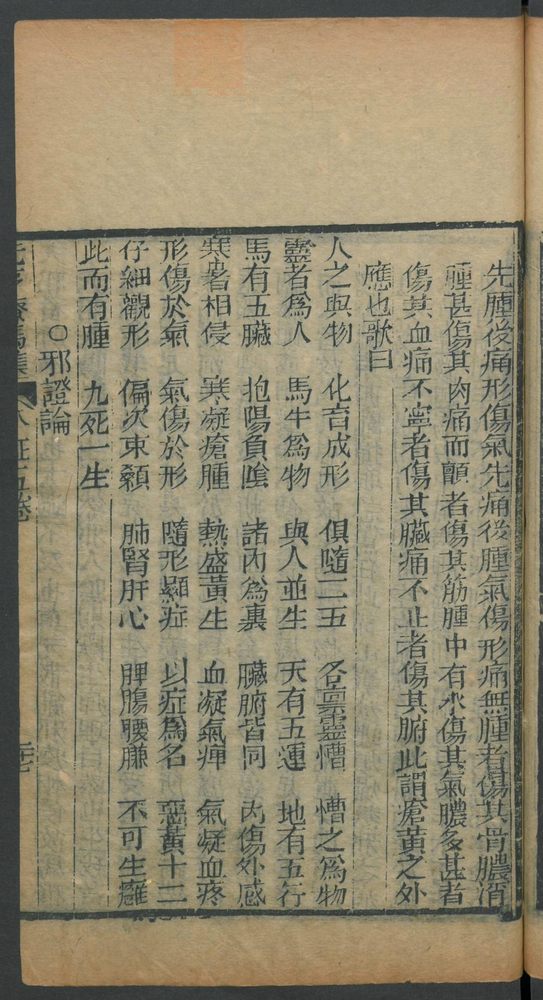 先腫後痛形傷氣先痛後腫氣傷形痛無腫者傷其骨膿消
腫甚傷其肉痛而顫者傷其筋腫中有水傷其氣膿多甚者
傷其血痛不寧者傷其臟痛不止者傷其腑此謂瘡黃之外
應也歌曰
人之與物 化育成形 俱隨二五 各稟靈𢡟 𢡟之為物
靈者為人 馬牛為物 與人並生 天有五運 地有五行
馬有五臟 抱陽負陰 諸內為裏 臟腑皆同 內傷外感
寒暑相侵 寒凝瘡腫 熱盛黃生 血凝氣痺 氣凝血疼
形傷於氣 氣傷於形 隨形顯症 以症為名 惡黃十二
仔細觀形 偏次束顙 肺腎肝心 脾腸腰膁 不可生癰
此而有腫 九死一生
○邪證論
元亨療馬集 八証五卷 三七